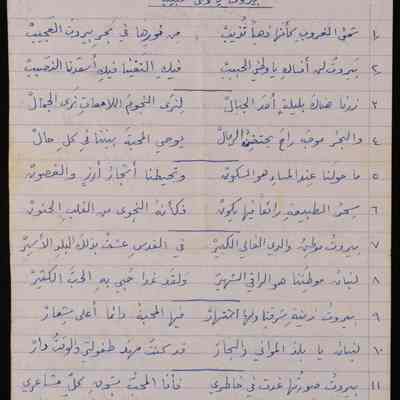 ١ شمس الغروب كأنها ذهباً تُذيبْ من فورها في بحر بيروت العجيبْ
٢ بيروت لن أنساكِ يا وطني الحبيبْ فيكِ التقينا فيكِ أسعدنا النصيبْ
٣ زرنا هناك بليلةٍ الجبالْ لنرى النجوم اللامعات نرى الجمالْ
٤ والبحر موجٌ راح الرمالْ يوحي المحبة بيننا في كل حالْ
٥ ما حولنا عند المساء هو السكونْ وتحيطنا أشجار أرزٍ والغصونْ
٦ سحر الطبيعة رائعاً فيها يكونْ فكأنه النجوى من القلب الحنونْ
٧ بيروت موطن والدي الغالي الكبيرْ في القدس عشتُ بذلك البلد الأسيرْ
٨ لبنان موطننا هو الراقي الشهيرْ ولقد غدا حبي به الحبَّ الكثيرْ
٩ بيروت زينة شرقنا ولها فيها المحبة دائماً أعلى شعارْ
١٠ لبنان يا بلد الموانئ والبحارْ قد كنت مهد طفولتي والوقت دارْ
١١ بيروت صورتها غدت في خاطري فأنا المحب كل مشاعري